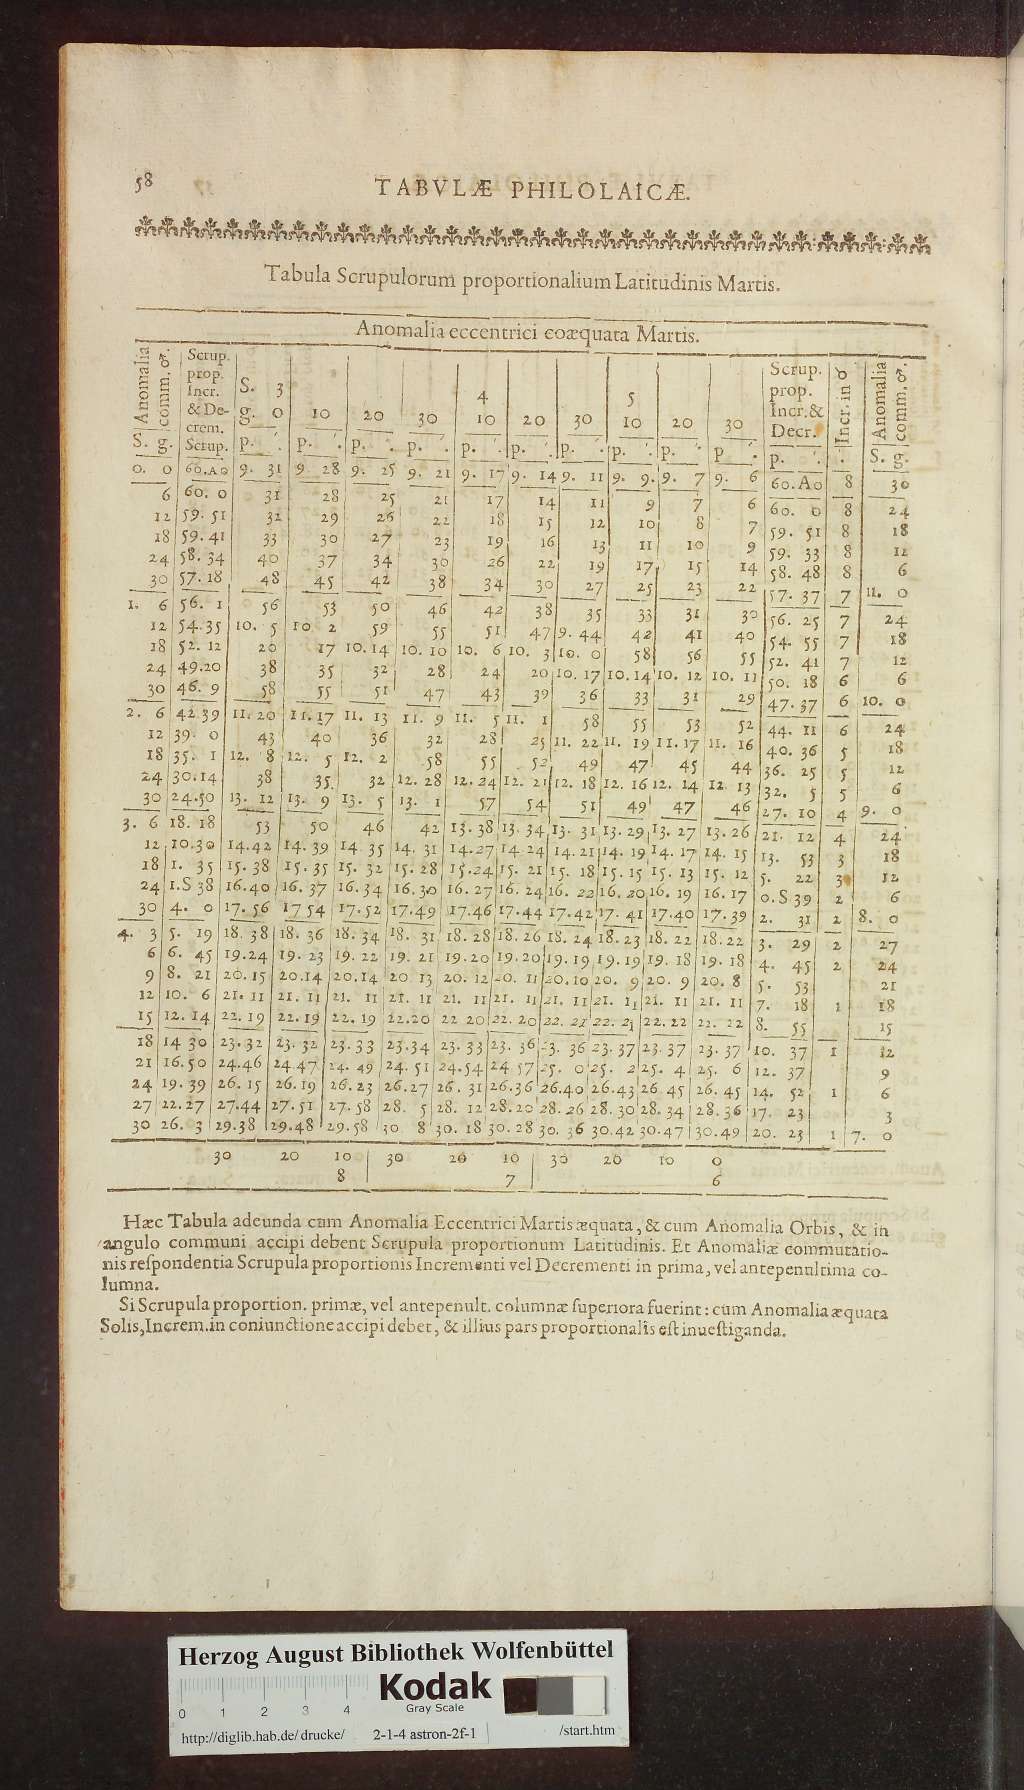 58
TABVLÆ PHILOLAICÆ.
Tabula Scrupulorum proportionalium Latitudinis Martis.
Anomalia eccentrici coæquata Martis.
Anomalia comm. ♂. Scrup. prop. Incr. & Decrem. S. 3 4 5 Scrup. prop. Incr. & Decr. Incr. in ☌ Anomalia comm. ♂.
g. 0 10 20 30 10 20 30 10 20 30
S. g. Scrup. p. '. p. '. p. '. p. '. p. '. p. '. p. '. p. '. p. '. p '. p. '. '. S. g.
0. 0 60.A0 9. 31 9. 28 9. 25 9. 21 9. 17 9. 14 9. 11 9. 9. 9. 7 9. 6 60.A0 8 30
6 60. 0 31 28 25 21 17 14 11 9 7 6 60. 0 8 24
12 59. 51 32 29 26 22 18 15 12 10 8 7 59. 51 8 18
18 59. 41 33 30 27 23 19 16 13 11 10 9 59. 33 8 12
24 58. 34 40 37 34 30 26 22 19 17 15 14 58. 48 8 6
30 57. 18 48 45 42 38 34 30 27 25 23 22 57. 37 7 11. 0
1. 6 56. 1 56 53 50 46 42 38 35 33 31 30 56. 25 7 24
12 54.35 10. 5 10 2 59 55 51 47 9. 44 42 41 40 54. 55 7 18
18 52. 12 20 17 10. 14 10. 10 10. 6 10. 3 10. 0 58 56 55 52. 41 7 12
24 49.20 38 35 32 28 24 20 10. 17 10. 14 10. 12 10. 11 50. 18 6 6
30 46. 9 58 55 51 47 43 39 36 33 31 29 47. 37 6 10. 0
2. 6 42.39 11. 20 11. 17 11. 13 11. 9 11. 5 11. 1 58 55 53 52 44. 11 6 24
12 39. 0 43 40 36 32 28 25 11. 22 11. 19 11. 17 11. 16 40. 36 5 18
18 35. 1 12. 8 12. 5 12. 2 58 55 52 49 47 45 44 36. 25 5 12
24 30.14 38 35 32 12. 28 12. 24 12. 21 12. 18 12. 16 12. 14 12. 13 32. 5 5 6
30 24.50 13. 12 13. 9 13. 5 13. 1 57 54 51 49 47 46 27. 10 4 9. 0
3. 6 18. 18 53 50 46 42 13. 38 13. 34 13. 31 13. 29 13. 27 13. 26 21. 12 4 24
12 10.30 14.42 14. 39 14. 35 14. 31 14.27 14. 24 14. 21 14. 19 14. 17 14. 15 13. 53 3 18
18 1. 35 15. 38 15. 35 15. 32 15. 28 15.24 15. 21 15. 18 15. 15 15. 13 15. 12 5. 22 3 12
24 1.S 38 16.40 16. 37 16. 34 16.30 16. 27 16. 24 16. 22 16. 20 16. 19 16. 17 0.S 39 2 6
30 4. 0 17. 56 17 54 17.52 17.49 17.46 17.44 17.42 17. 41 17.40 17.39 2. 31 2 8. 0
4. 3 5. 19 18. 38 18. 36 18. 34 18. 31 18. 28 18. 26 18. 24 18. 23 18. 22 18.22 3. 29 2 27
6 6. 45 19.24 19. 23 19. 22 19. 21 19.20 19.20 19. 19 19. 19 19. 18 19. 18 4. 45 2 24
9 8. 21 20. 15 20.14 20. 14 20 13 20. 12 20. 11 20.10 20. 9 20. 9 20. 8 5. 53 21
12 10. 6 21. 11 21. 11 21. 11 21. 11 21. 11 21. 11 21. 11 21. 11 21. 11 21. 11 7. 18 1 18
15 12. 14 22. 19 22. 19 22. 19 22.20 22 20 22. 20 22. 21 22. 21 22. 22 22. 22 8. 55 15
18 14 30 23. 32 23. 32 23. 33 23.34 23. 33 23. 36 23. 36 23. 37 23. 37 23. 37 10. 37 1 12
21 16.50 24.46 24 47 24. 49 24. 51 24.54 24 57 25. 0 25. 2 25. 4 25. 6 12. 37 9
24 19. 39 26. 15 26.19 26. 23 26.27 26. 31 26.36 26.40 26.43 26. 45 26. 45 14. 52 1 6
27 22.27 27.44 27. 51 27. 58 28. 5 28. 12 28.20 28. 26 28. 30 28. 34 28.36 17. 23 3
30 26. 3 29.38 29.48 29.58 30. 8 30. 18 30. 28 30. 36 30.42 30.47 30.49 20. 23 1 7. 0
30 20 10 30 20 10 30 20 10 0
8 7 6
Hæc Tabula adeunda cum Anomalia Eccentrici Martis æquata, & cum Anomalia Orbis, & in
angulo communi accipi debent Scrupula proportionum Latitudinis. Et Anomaliæ commutatio-
nis respondentia Scrupula proportionis Incrementi vel Decrementi in prima, vel antepenultima co-
lumna.
Si Scrupula proportion. primæ, vel antepenult. columnæ superiora fuerint: cum Anomalia æquata
Solis, Increm. in coniunctione accipi debet, & illius pars proportionalis est inuestiganda.
Herzog August Bibliothek Wolfenbüttel
Kodak
Gray Scale
0 1 2 3 4
http://diglib.hab.de/drucke/ 2-1-4 astron-2f-1 /start.htm